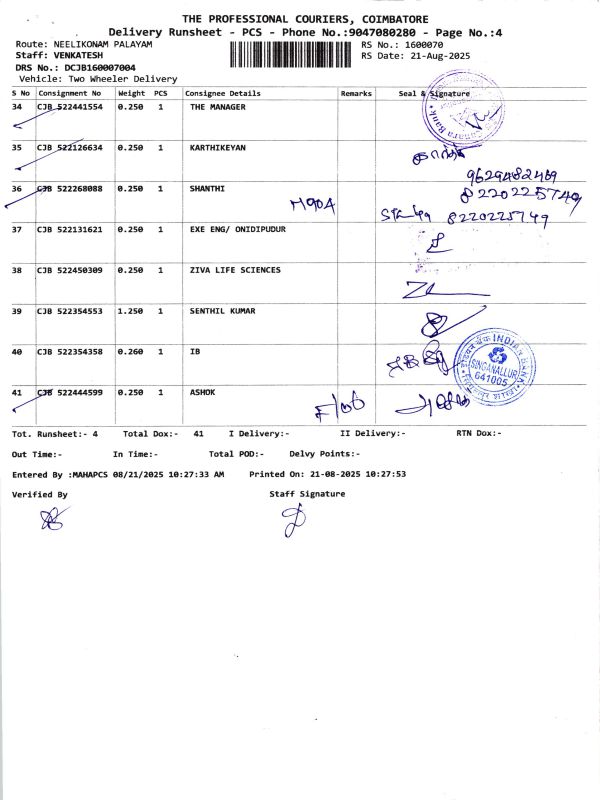 THE PROFESSIONAL COURIERS, COIMBATORE
Delivery Runsheet - PCS - Phone No.:9047080280 - Page No.:4
Route: NEELIKONAM PALAYAM RS No.: 1600070
Staff: VENKATESH RS Date: 21-Aug-2025
DRS No.: DCJB160007004
Vehicle: Two Wheeler Delivery
S No Consignment No Weight PCS Consignee Details Remarks Seal & Signature
34 CJB 522441554 0.250 1 THE MANAGER
35 CJB 522126634 0.250 1 KARTHIKEYAN
9629482469
36 CJB 522268088 0.250 1 SHANTHI 8220225749
M904 8220225749
37 CJB 522131621 0.250 1 EXE ENG/ ONIDIPUDUR
38 CJB 522450309 0.250 1 ZIVA LIFE SCIENCES
39 CJB 522354553 1.250 1 SENTHIL KUMAR
40 CJB 522354358 0.260 1 IB
INDIAN BANK
SINGANALLUR
641005
41 CJB 522444599 0.250 1 ASHOK
Tot. Runsheet:- 4 Total Dox:- 41 I Delivery:- II Delivery:- RTN Dox:-
Out Time:- In Time:- Total POD:- Delvy Points:-
Entered By :MAHAPCS 08/21/2025 10:27:33 AM Printed On: 21-08-2025 10:27:53
Verified By Staff Signature